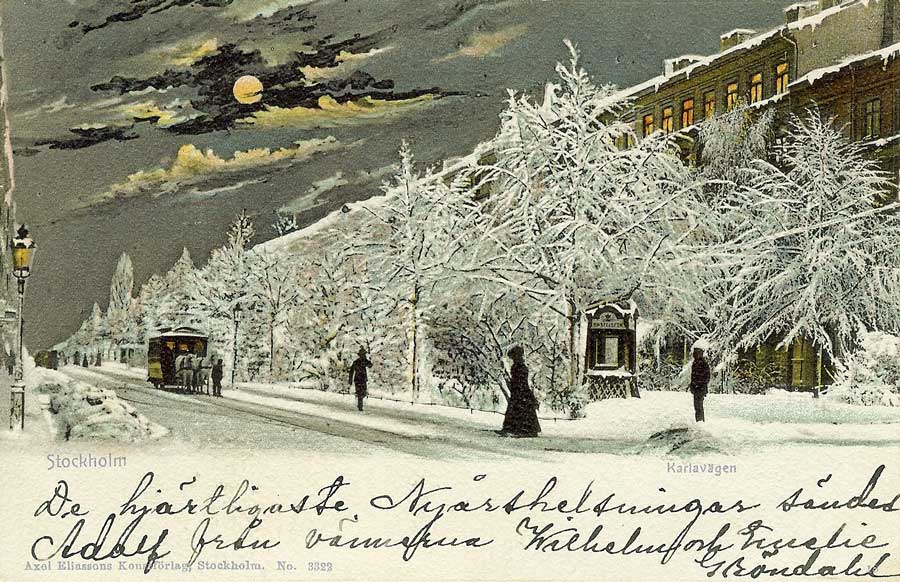 Stockholm
Karlavägen
De hjärtligaste Nyårshelsningar sändes
Adolf från vännerna Wilhelm och Emelie
Gröndahl
Axel Eliassons Konstförlag, Stockholm. No. 3322